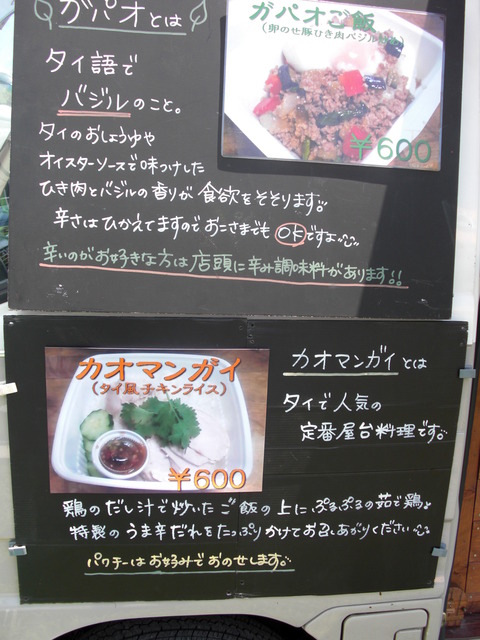 ガパオとは
タイ語で
バジルのこと。
タイのおしょうゆや
オイスターソースで味つけした
ひき肉とバジルの香りが食欲をそそります。
辛さはひかえてますのでおこさまでもOKですよ
辛いのがお好きな方は店頭に辛み調味料があります!!
ガパオご飯
(卵のせ豚ひき肉バジル
¥600
カオマンガイ
(タイ風チキンライス)
¥600
カオマンガイとは
タイで人気の
定番屋台料理です。
鶏のだし汁で炊いたご飯の上に、ぷるぷるの茹で鶏、
特製のうま辛だれをたっぷりかけてお召しあがりください
パクチーはお好みでおのせします。